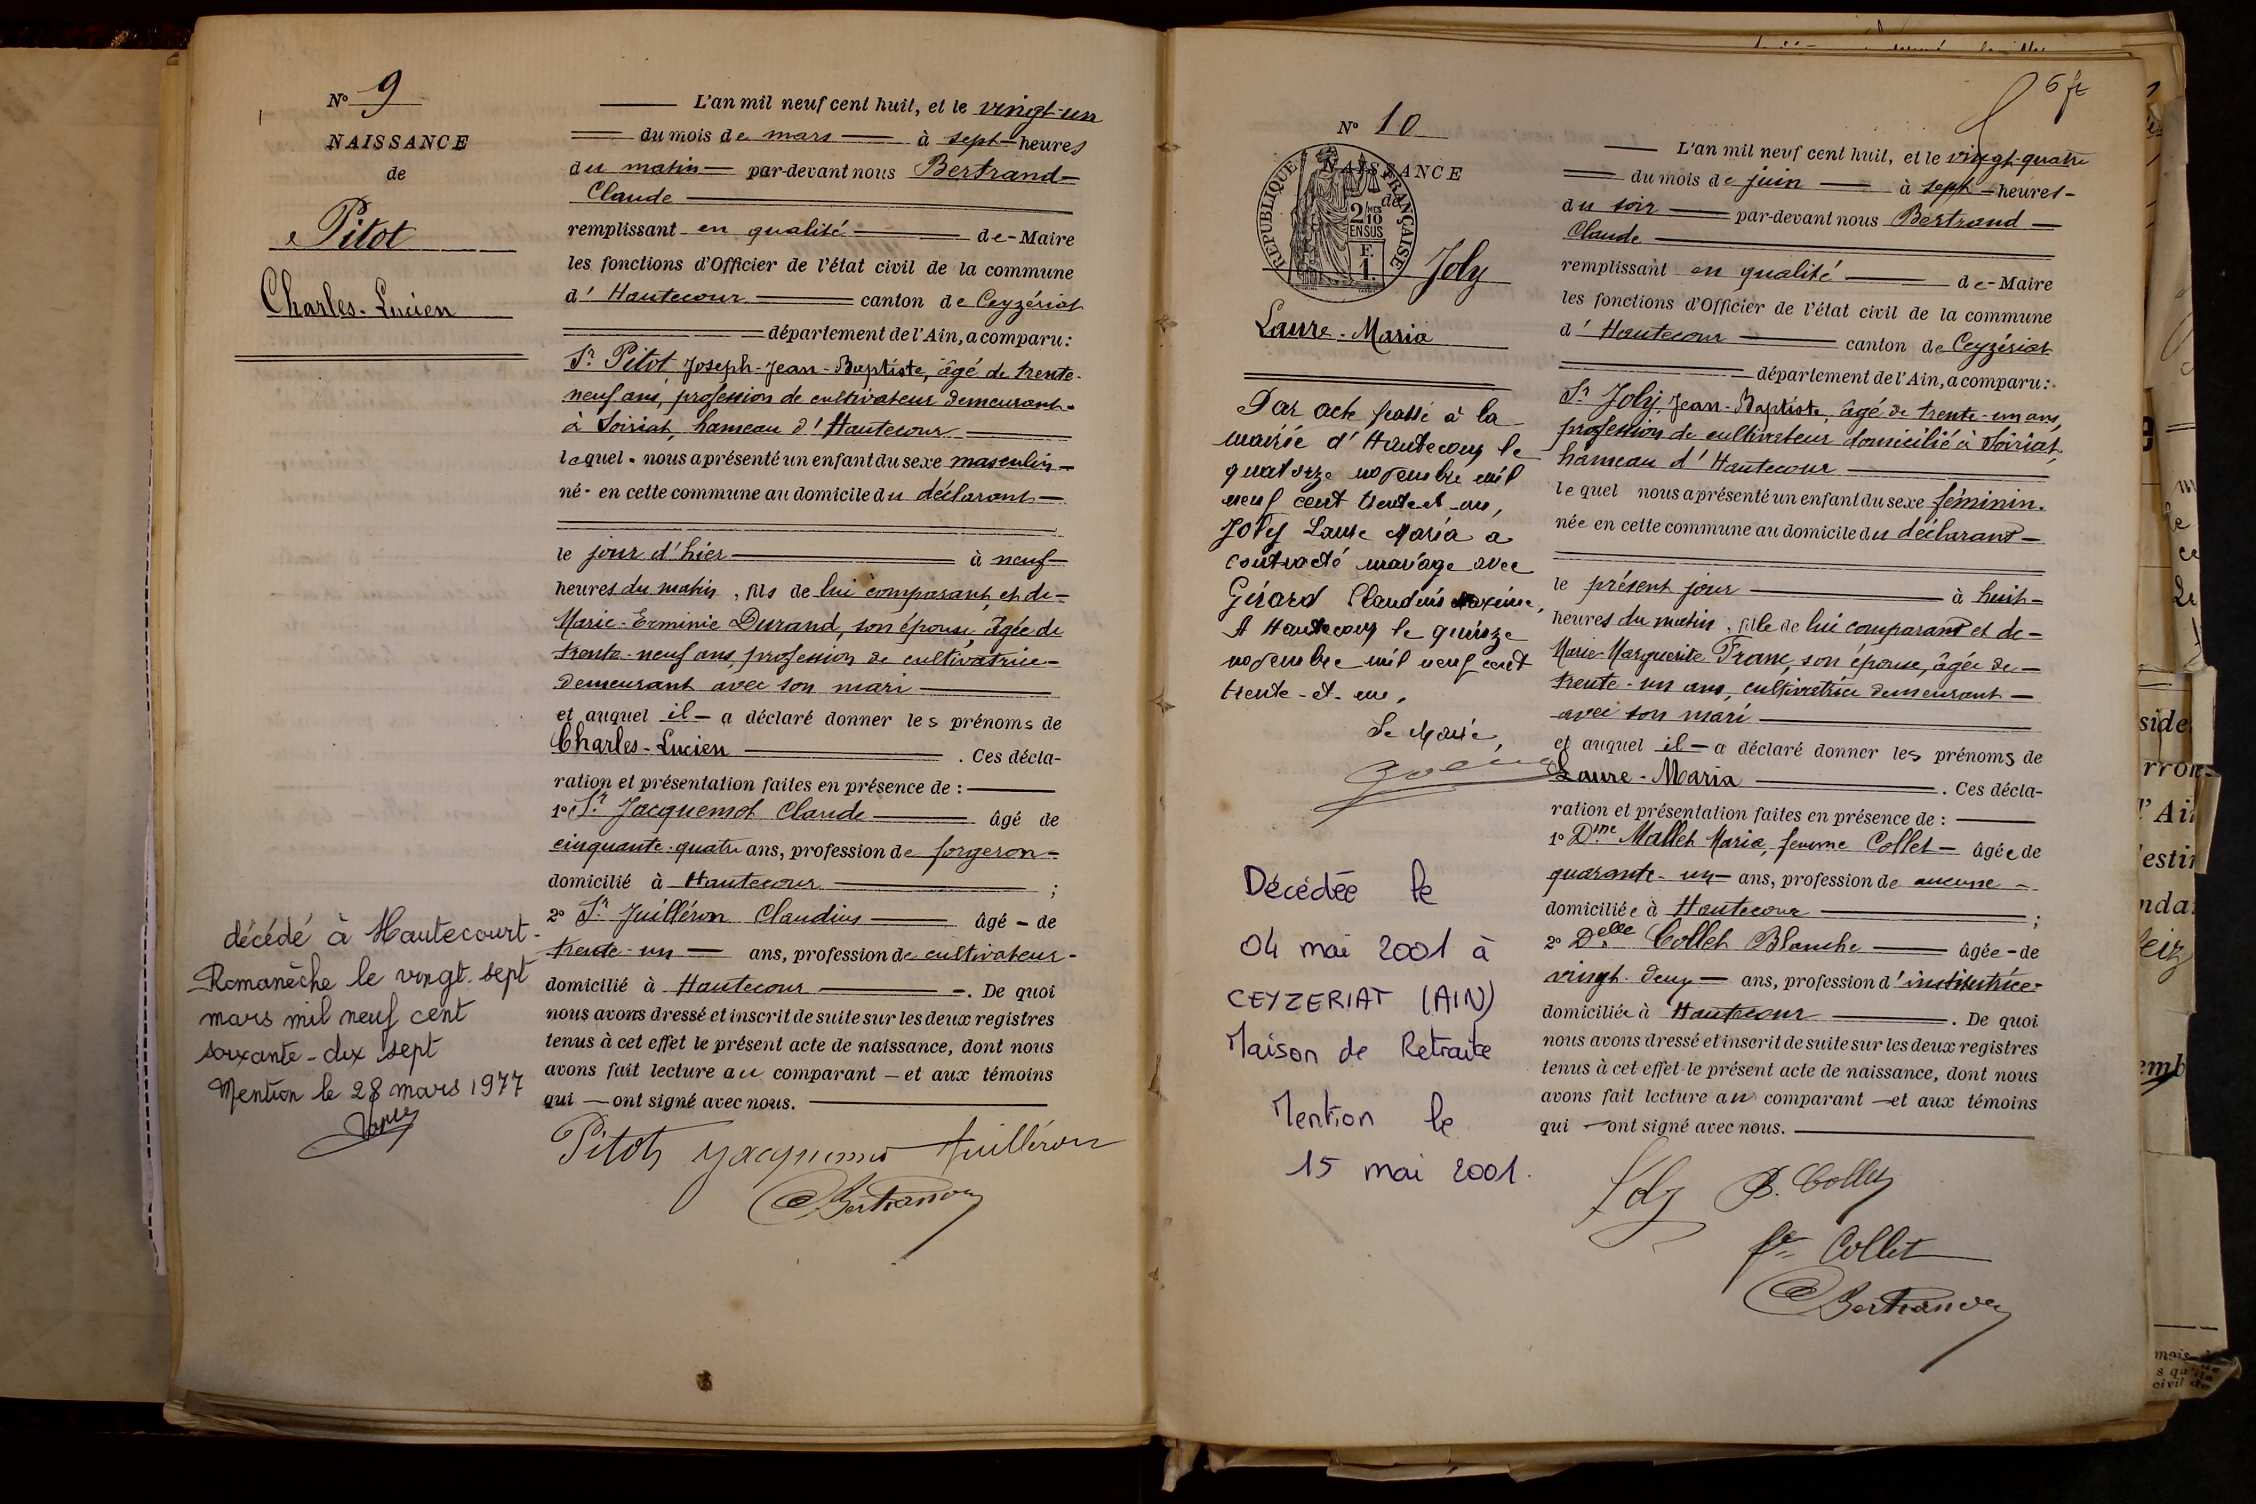 N° 9
NAISSANCE
de
Pitot
Charles-Lucien
décédé à Hautecourt-
Romanèche le vingt-sept
mars mil neuf cent
soixante-dix sept
Mention le 28 mars 1977
L'an mil neuf cent huit, et le vingt-un
du mois de mars à sept heures
du matin par-devant nous Bertrand
Claude
remplissant en qualité de Maire
les fonctions d'Officier de l'état civil de la commune
d'Hautecour canton de Ceyzériat
département de l'Ain, a comparu :
Sr Pitot Joseph-Jean-Baptiste, âgé de trente-
neuf ans, profession de cultivateur demeurant
à Soiriat, hameau d'Hautecour
lequel nous a présenté un enfant du sexe masculin
né en cette commune au domicile du déclarant
le jour d'hier à neuf
heures du matin, fils de lui comparant et de
Marie-Erminie Durand, son épouse, âgée de
trente-neuf ans, profession de cultivatrice
demeurant avec son mari
et auquel il a déclaré donner les prénoms de
Charles-Lucien. Ces décla-
ration et présentation faites en présence de :
1° Sr Jacquemot Claude âgé de
cinquante-quatre ans, profession de forgeron
domicilié à Hautecour ;
2° Sr Juilléron Claudius âgé de
trente-un ans, profession de cultivateur
domicilié à Hautecour. De quoi
nous avons dressé et inscrit de suite sur les deux registres
tenus à cet effet le présent acte de naissance, dont nous
avons fait lecture au comparant et aux témoins
qui ont signé avec nous.
Pitot Jacquemot Juilléron
C Bertrand
6 ft
N° 10
NAISSANCE
de
REPUBLIQUE FRANÇAISE
2/10 MES
EN SUS
F.
1.
Joly
Laure-Maria
Par acte passé à la
mairie d'Hautecour le
quatorze novembre mil
neuf cent trente et un,
Joly Laure Maria a
contracté mariage avec
Gérard Claudius Maxime,
A Hautecour le quinze
novembre mil neuf cent
trente-et-un,
Le Maire,
Décédée le
04 mai 2001 à
CEYZERIAT (AIN)
Maison de Retraite
Mention le
15 mai 2001.
L'an mil neuf cent huit, et le vingt-quatre
du mois de juin à sept heures
du soir par-devant nous Bertrand
Claude
remplissant en qualité de Maire
les fonctions d'Officier de l'état civil de la commune
d'Hautecour canton de Ceyzériat
département de l'Ain, a comparu :
Sr Joly, Jean-Baptiste, âgé de trente-un ans,
profession de cultivateur domicilié à Soiriat,
hameau d'Hautecour
lequel nous a présenté un enfant du sexe féminin.
née en cette commune au domicile du déclarant
le présent jour à huit
heures du matin, fille de lui comparant et de
Marie-Marguerite Franc, son épouse, âgée de
trente-un ans, cultivatrice demeurant
avec son mari
et auquel il a déclaré donner les prénoms de
Laure-Maria. Ces décla-
ration et présentation faites en présence de :
1° Dme Mallet Maria, femme Collet âgée de
quarante-un ans, profession de aucune
domiciliée à Hautecour ;
2° Delle Collet Blanche âgée de
vingt-deux ans, profession d'institutrice
domiciliée à Hautecour. De quoi
nous avons dressé et inscrit de suite sur les deux registres
tenus à cet effet le présent acte de naissance, dont nous
avons fait lecture au comparant et aux témoins
qui ont signé avec nous.
Joly B. Collet
fe Collet
C Bertrand